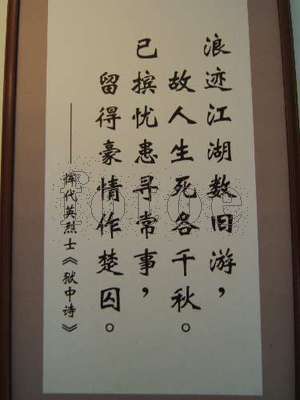 浪迹江湖数旧游，
故人生死各千秋。
已摈忧患寻常事，
留得豪情作楚囚。
——恽代英烈士《狱中诗》